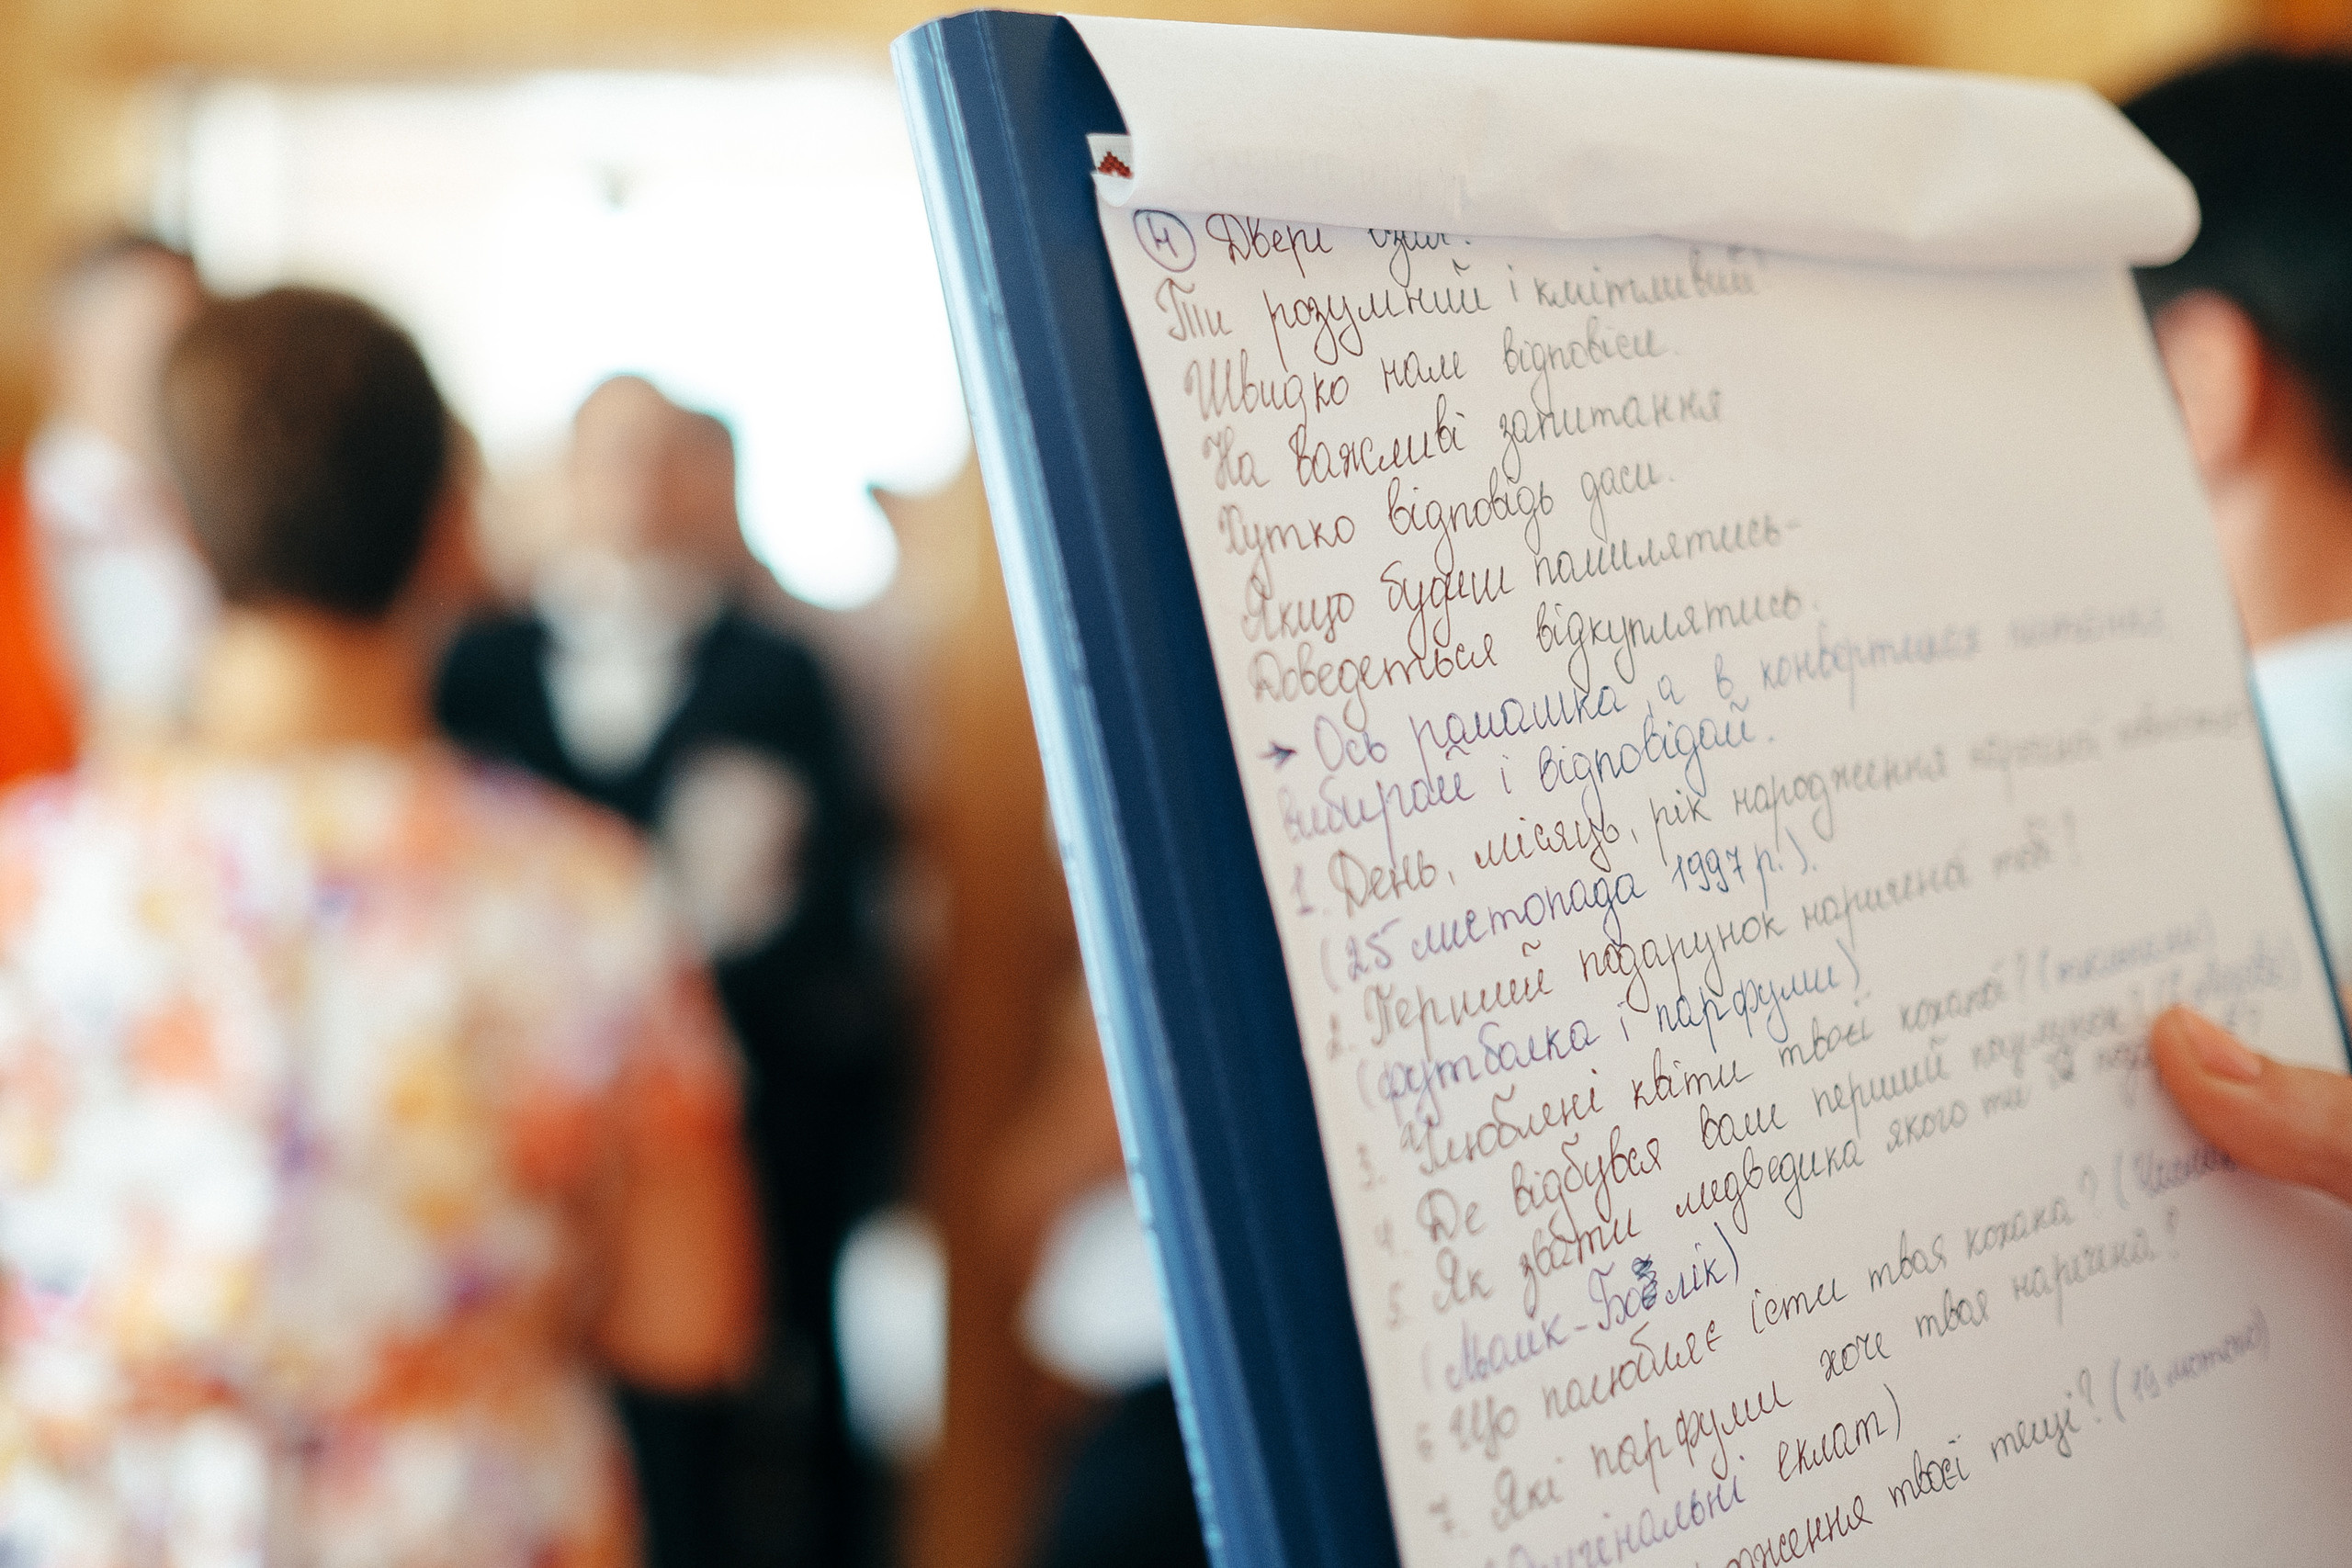 ④ Двері
Ти розумний і кмітливий
Швидко нам відповіси.
На важливі запитання
Хутко відповідь даси.
Якщо будеш помилятись-
Доведеться відкуплятись.
→ Ось ромашка, а в конвертиках питання
вибирай і відповідай.
1. День, місяць, рік народження
(25 листопада 1997 р.).
2. Перший подарунок нареченої тобі?
(футболка і парфуми)
3. Улюблені квіти твоєї коханої?
4. Де відбувся ваш перший поцілунок?
5. Як звати медведика якого ти
(Майк-Болік)
6. Що полюбляє їсти твоя кохана?
7. Які парфуми хоче твоя наречена?
еклат)
твоєї тещі? (19 лютого)